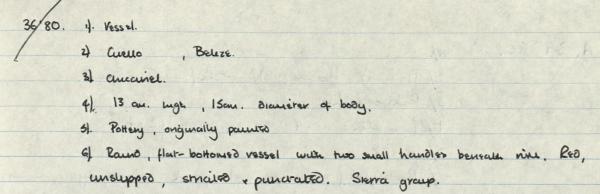 36/80. 1). Vessel.
2) Cuello , Belize.
3)
4). 13 cm. high , 15cm. diameter of body.
5). Pottery, originally painted
6) Round, flat-bottomed vessel with two small handles beneath rim. Red,
unslipped, incised & punctated. Sierra group.